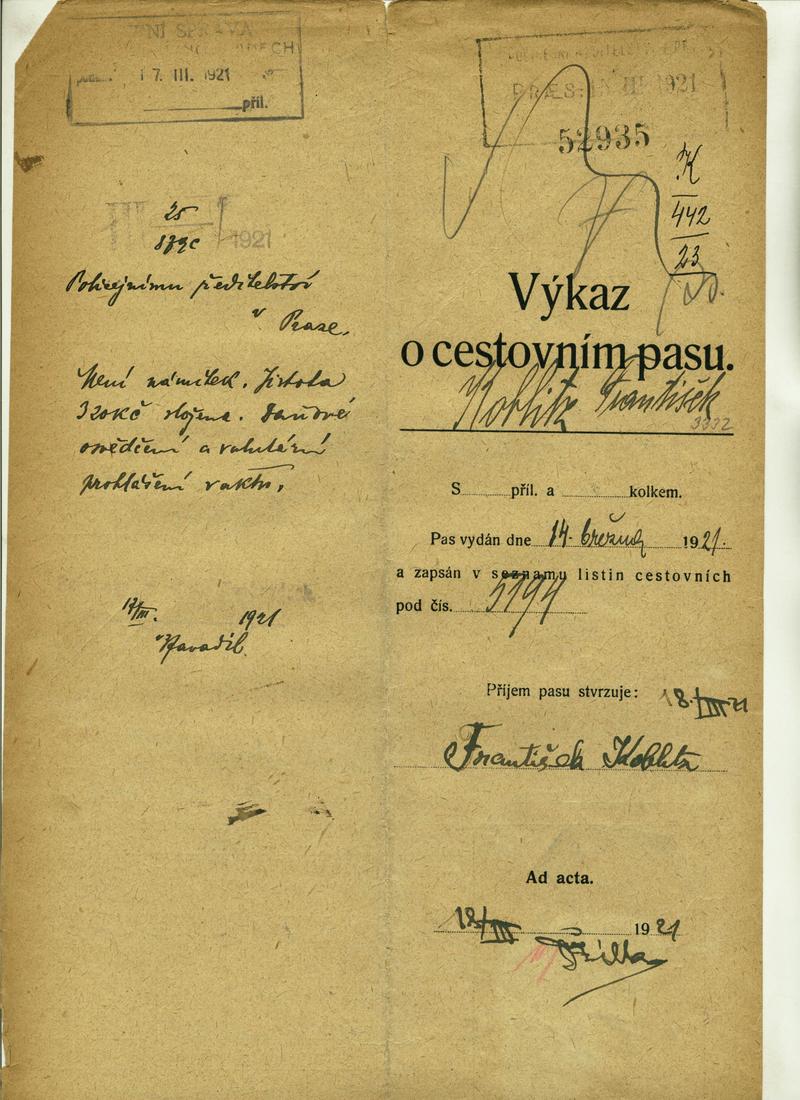 17. III. 1921
příl.
25
1921
Policejnímu ředitelství
v Praze.
Není námitek. Jistota
320 Kč složena. Daňové
osvědčení a valutární
prohlášení
17/III. 1921
52935
K
442
23
Výkaz
o cestovním pasu.
Koblitz František
3332
S příl. a kolkem.
Pas vydán dne 14. března 1921.
a zapsán v seznamu listin cestovních
pod čís. 5194
Příjem pasu stvrzuje: 18./III 21
František Koblitz
Ad acta.
18/III 1921